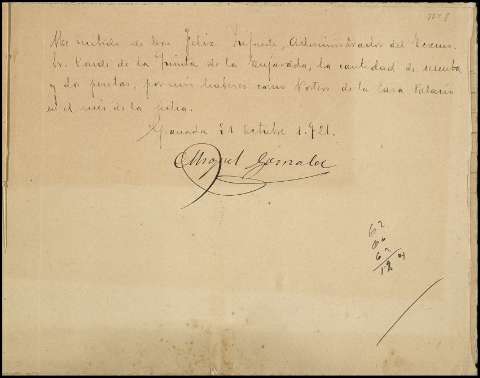 Nº 8
He recibido de Don Felix Infante, Administrador del Excmo.
Sr. Conde de la Puebla de la, la cantidad de sesenta
y dos pesetas, por mis haberes como Portero de la Casa Palacio
en el mes de la fecha.
Granada 31 Octubre 1.921.
Miguel González
62
62